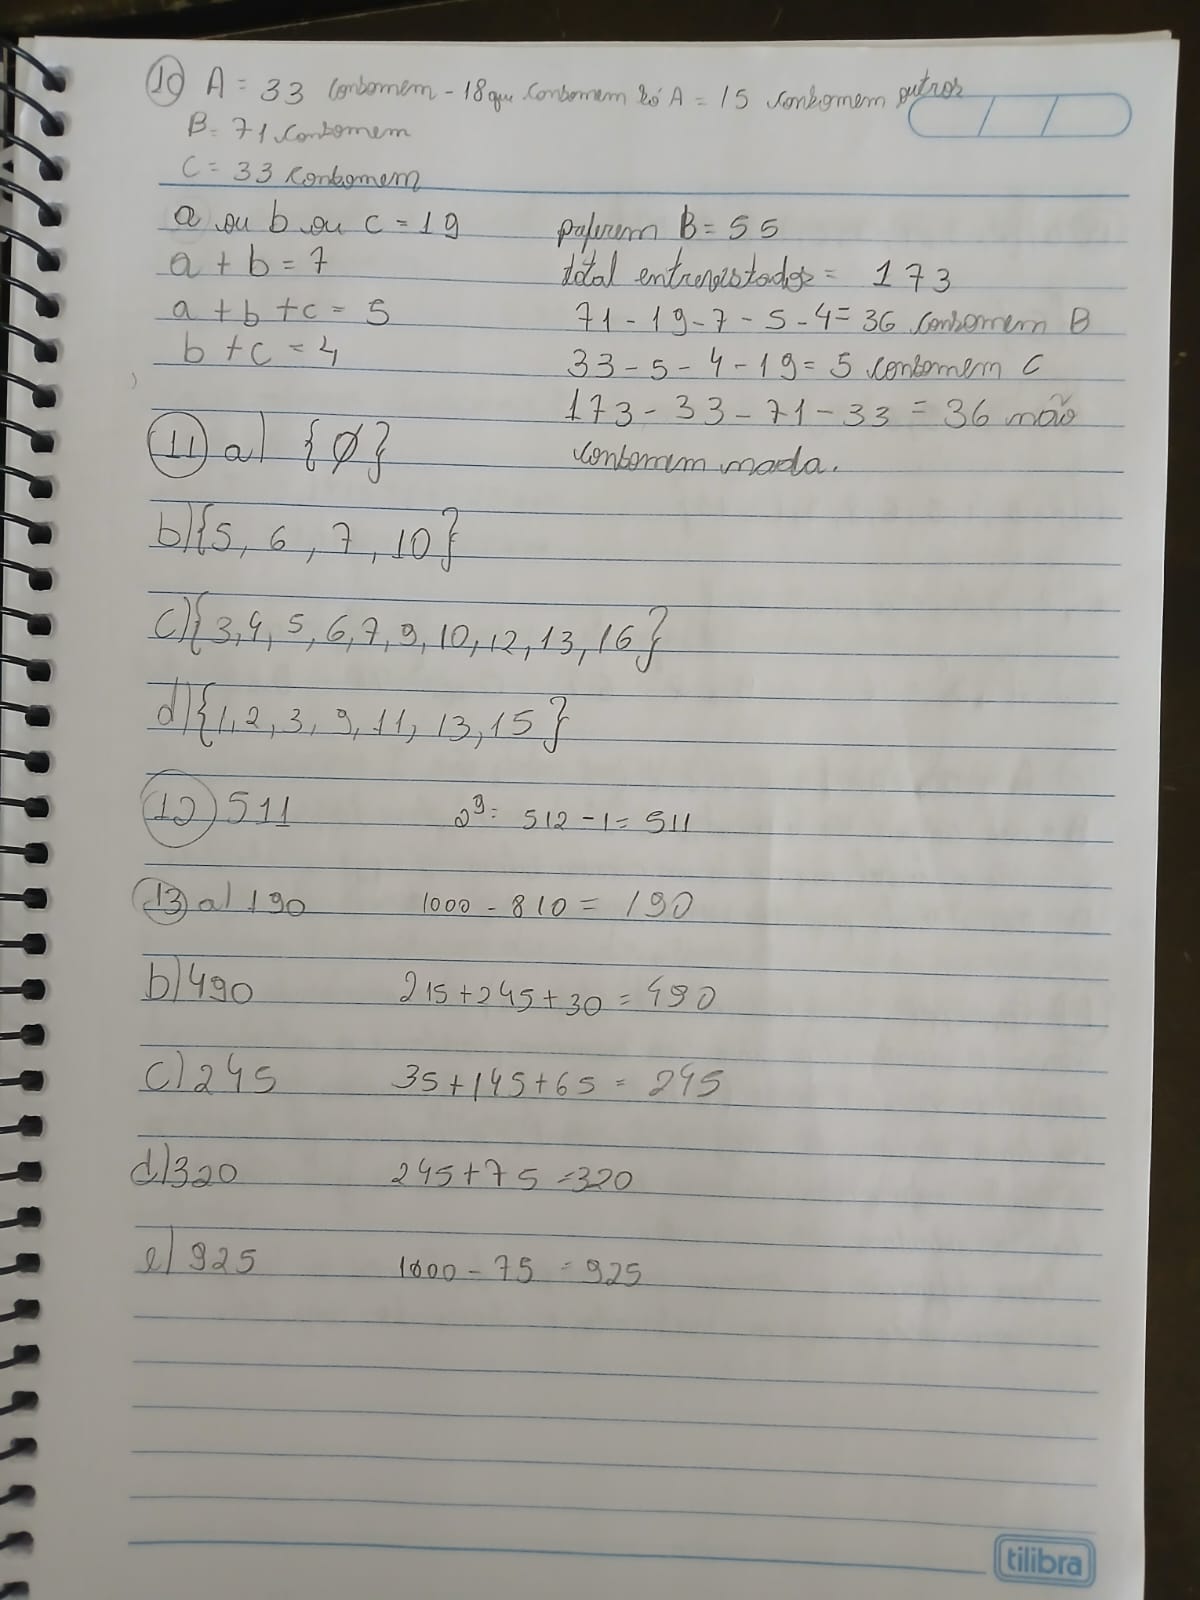 10) A = 33 consomem - 18 que consomem só A = 15 consomem outros
B = 71 consomem
C = 33 consomem
a ou b ou c = 19
a + b = 7
a + b + c = 5
b + c = 4
preferem B = 55
total entrevistados = 173
71 - 19 - 7 - 5 - 4 = 36 consomem B
33 - 5 - 4 - 19 = 5 consomem C
173 - 33 - 71 - 33 = 36 não
consomem nada.
11) a) {∅}
b) {5, 6, 7, 10}
c) {3, 4, 5, 6, 7, 9, 10, 12, 13, 16}
d) {1, 2, 3, 9, 11, 13, 15}
12) 511 2⁹ = 512 - 1 = 511
13) a) 190 1000 - 810 = 190
b) 490 215 + 245 + 30 = 490
c) 245 35 + 145 + 65 = 245
d) 320 245 + 75 = 320
e) 925 1000 - 75 = 925
tilibra